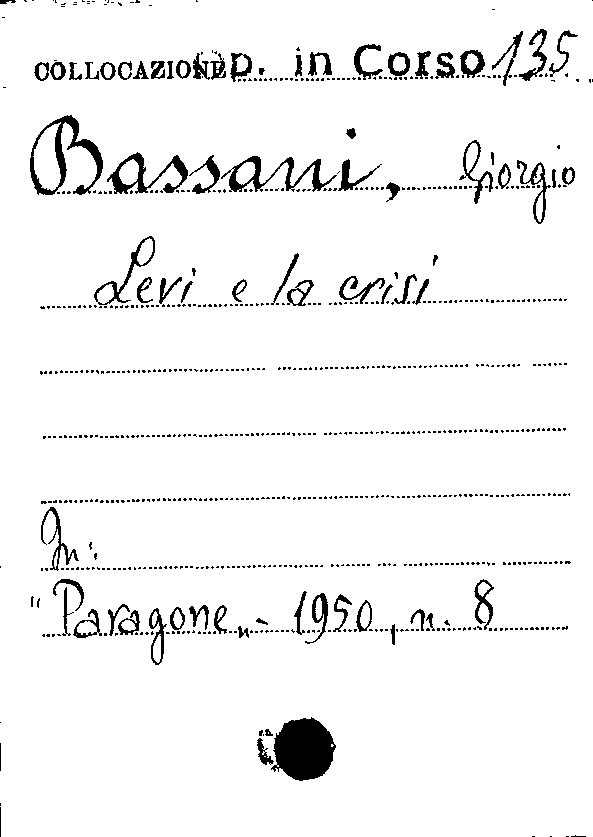 COLLOCAZIONE Op. in Corso 135
Bassani, Giorgio
Levi e la crisi
In:
"Paragone„ - 1950, n. 8